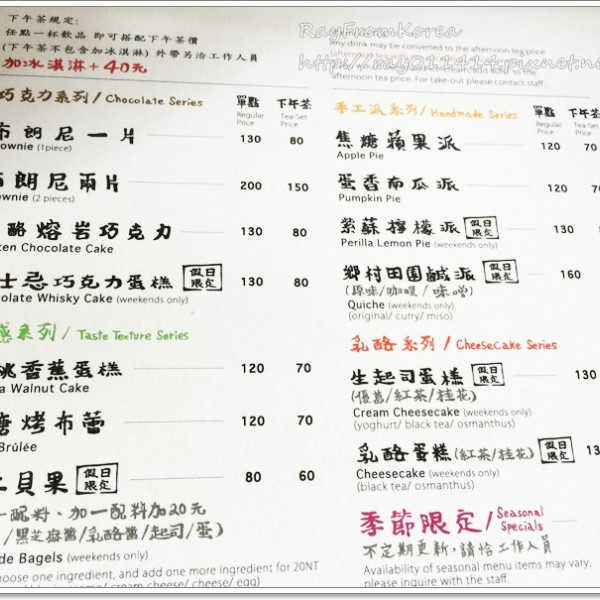 下午茶規定:
任點一杯飲品 即可搭配下午茶價
(下午茶不包含加冰淇淋) 外帶另洽工作人員
加冰淇淋+40元
巧克力系列/ Chocolate Series
單點 下午茶
Regular Price Tea-Set Price
布朗尼一片 130 80
ownie (1piece)
布朗尼兩片 200 150
ownie (2 pieces)
酪熔岩巧克力 130 80
ten Chocolate Cake
士忌巧克力蛋糕 假日限定 130 80
colate Whisky Cake (weekends only)
感系列/ Taste Texture Series
桃香蕉蛋糕 120 70
a Walnut Cake
糖烤布蕾 120 70
Brûlée
貝果 假日限定 80 60
一配料、加一配料加20元
/黑芝麻醬/乳酪醬/起司/蛋)
de Bagels (weekends only)
hoose one ingredient, and add more ingredient for 20NT
cream cheese/ cheese/ egg)
RayFromKorea
Any drink may be converted to the afternoon tea price
afternoon tea price. For take-out please contact staff.
手工派系列/ Handmade Series
單點 下午茶
Regular Price Tea-Set Price
焦糖蘋果派 120 70
Apple Pie
蛋香南瓜派 120 70
Pumpkin Pie
紫蘇檸檬派 假日限定 130 80
Perilla Lemon Pie (weekends only)
鄉村田園鹹派 假日限定 160
(原味/咖哩/味噌)
Quiche (weekends only)
(original/ curry/ miso)
乳酪系列/ Cheesecake Series
生起司蛋糕 假日限定 130
(優格/紅茶/桂花)
Cream Cheesecake (weekends only)
(yoghurt/ black tea/ osmanthus)
乳酪蛋糕(紅茶/桂花) 假日限定 13
Cheesecake (weekends only)
(black tea/ osmanthus)
季節限定/ Seasonal Specials
不定期更新,請洽工作人員
Availability of seasonal menu items may vary,
please inquire with the staff.